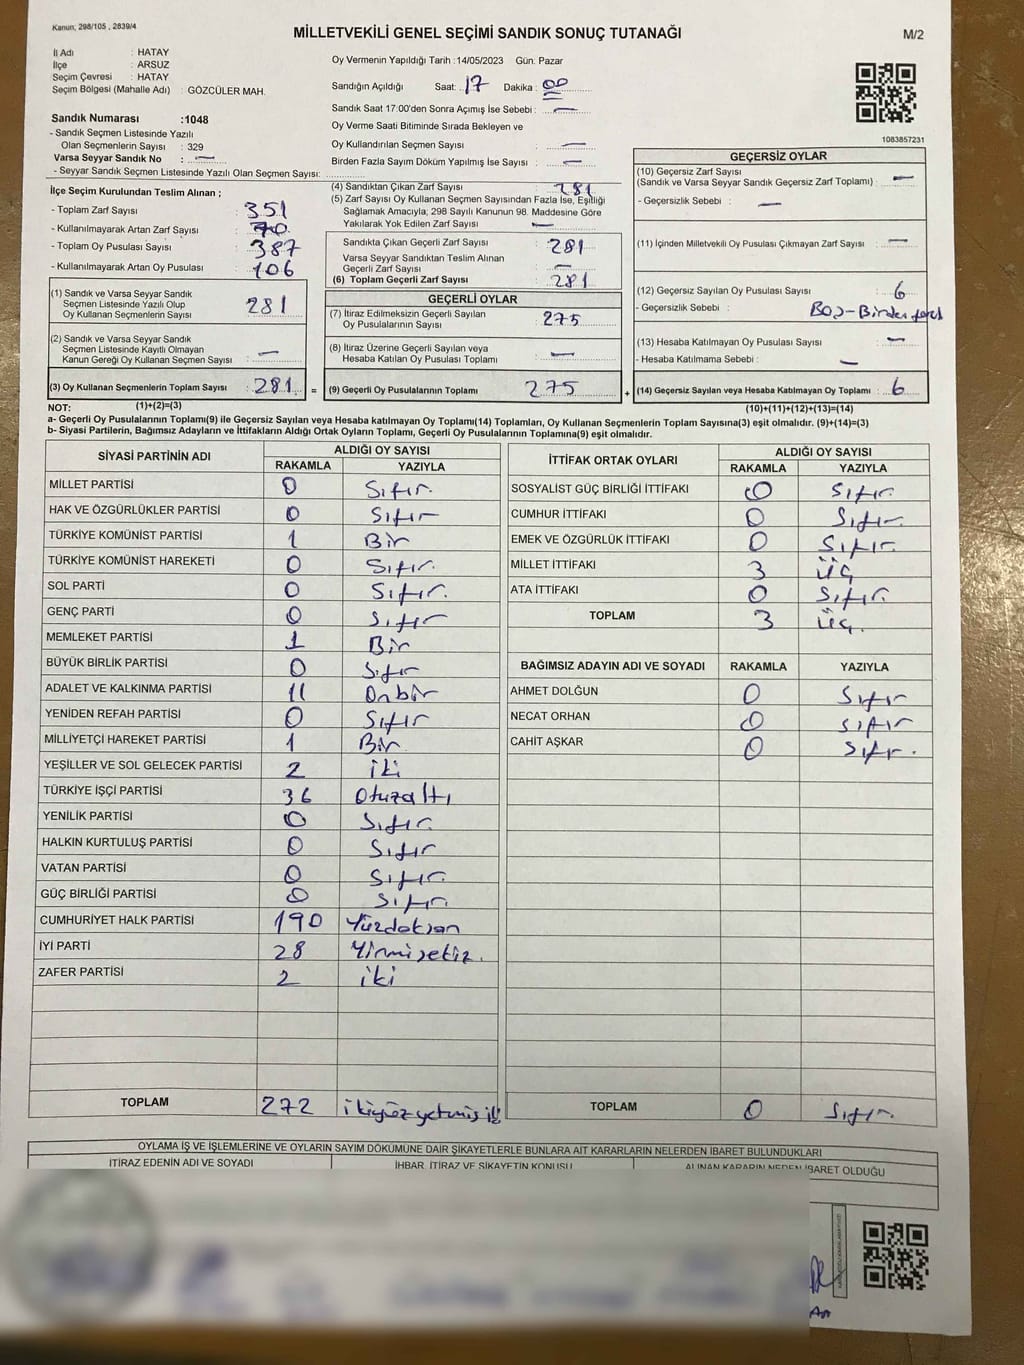 Kanun; 298/105 , 2839/4
MİLLETVEKİLİ GENEL SEÇİMİ SANDIK SONUÇ TUTANAĞI
M/2
İl Adı : HATAY
İlçe : ARSUZ
Seçim Çevresi : HATAY
Seçim Bölgesi (Mahalle Adı) : GÖZCÜLER MAH.
Oy Vermenin Yapıldığı Tarih : 14/05/2023 Gün: Pazar
Sandığın Açıldığı Saat: 17 Dakika : 00
Sandık Saat 17:00'den Sonra Açımış İse Sebebi : —
Oy Verme Saati Bitiminde Sırada Bekleyen ve
Oy Kullandırılan Seçmen Sayısı : —
Birden Fazla Sayım Döküm Yapılmış İse Sayısı : —
1083857231
Sandık Numarası :1048
- Sandık Seçmen Listesinde Yazılı
Olan Seçmenlerin Sayısı : 329
Varsa Seyyar Sandık No : —
- Seyyar Sandık Seçmen Listesinde Yazılı Olan Seçmen Sayısı:
İlçe Seçim Kurulundan Teslim Alınan ;
- Toplam Zarf Sayısı : 351
- Kullanılmayarak Artan Zarf Sayısı : 70
- Toplam Oy Pusulası Sayısı : 387
- Kullanılmayarak Artan Oy Pusulası : 106
(1) Sandık ve Varsa Seyyar Sandık
Seçmen Listesinde Yazılı Olup
Oy Kullanan Seçmenlerin Sayısı : 281
(2) Sandık ve Varsa Seyyar Sandık
Seçmen Listesinde Kayıtlı Olmayan
Kanun Gereği Oy Kullanan Seçmen Sayısı : —
(3) Oy Kullanan Seçmenlerin Toplam Sayısı : 281 =
(1)+(2)=(3)
(4) Sandıktan Çıkan Zarf Sayısı : 281
(5) Zarf Sayısı Oy Kullanan Seçmen Sayısından Fazla İse, Eşitliği
Sağlamak Amacıyla; 298 Sayılı Kanunun 98. Maddesine Göre
Yakılarak Yok Edilen Zarf Sayısı : —
Sandıkta Çıkan Geçerli Zarf Sayısı : 281
Varsa Seyyar Sandıktan Teslim Alınan
Geçerli Zarf Sayısı : —
(6) Toplam Geçerli Zarf Sayısı : 281
GEÇERLİ OYLAR
(7) İtiraz Edilmeksizin Geçerli Sayılan
Oy Pusulalarının Sayısı : 275
(8) İtiraz Üzerine Geçerli Sayılan veya
Hesaba Katılan Oy Pusulası Toplamı : —
(9) Geçerli Oy Pusulalarının Toplamı 275 +
GEÇERSİZ OYLAR
(10) Geçersiz Zarf Sayısı
(Sandık ve Varsa Seyyar Sandık Geçersiz Zarf Toplamı) : —
- Geçersizlik Sebebi : —
(11) İçinden Milletvekili Oy Pusulası Çıkmayan Zarf Sayısı : —
(12) Geçersiz Sayılan Oy Pusulası Sayısı : 6
- Geçersizlik Sebebi : Boş-Birden
(13) Hesaba Katılmayan Oy Pusulası Sayısı : —
- Hesaba Katılmama Sebebi : —
(14) Geçersiz Sayılan veya Hesaba Katılmayan Oy Toplamı : 6
(10)+(11)+(12)+(13)=(14)
NOT:
a- Geçerli Oy Pusulalarının Toplamı(9) ile Geçersiz Sayılan veya Hesaba katılmayan Oy Toplamı(14) Toplamları, Oy Kullanan Seçmenlerin Toplam Sayısına(3) eşit olmalıdır. (9)+(14)=(3)
b- Siyasi Partilerin, Bağımsız Adayların ve İttifakların Aldığı Ortak Oyların Toplamı, Geçerli Oy Pusulalarının Toplamına(9) eşit olmalıdır.
SİYASİ PARTİNİN ADI ALDIĞI OY SAYISI
RAKAMLA YAZIYLA
MİLLET PARTİSİ 0 Sıfır.
HAK VE ÖZGÜRLÜKLER PARTİSİ 0 Sıfır
TÜRKİYE KOMÜNİST PARTİSİ 1 Bir
TÜRKİYE KOMÜNİST HAREKETİ 0 Sıfır.
SOL PARTİ 0 Sıfır.
GENÇ PARTİ 0 Sıfır
MEMLEKET PARTİSİ 1 Bir
BÜYÜK BİRLİK PARTİSİ 0 Sıfır
ADALET VE KALKINMA PARTİSİ 11 Onbir
YENİDEN REFAH PARTİSİ 0 Sıfır
MİLLİYETÇİ HAREKET PARTİSİ 1 Bir
YEŞİLLER VE SOL GELECEK PARTİSİ 2 iki
TÜRKİYE İŞÇİ PARTİSİ 36 Otuzaltı
YENİLİK PARTİSİ 0 Sıfır.
HALKIN KURTULUŞ PARTİSİ 0 Sıfır
VATAN PARTİSİ 0 Sıfır.
GÜÇ BİRLİĞİ PARTİSİ 0 Sıfır.
CUMHURİYET HALK PARTİSİ 190 Yüzdoksan
İYİ PARTİ 28 Yirmisekiz.
ZAFER PARTİSİ 2 iki
TOPLAM 272 ikiyüzyetmiş iki
İTTİFAK ORTAK OYLARI ALDIĞI OY SAYISI
RAKAMLA YAZIYLA
SOSYALİST GÜÇ BİRLİĞİ İTTİFAKI 0 Sıfır
CUMHUR İTTİFAKI 0 Sıfır.
EMEK VE ÖZGÜRLÜK İTTİFAKI 0 Sıfır.
MİLLET İTTİFAKI 3 üç
ATA İTTİFAKI 0 Sıfır.
TOPLAM 3 üç.
BAĞIMSIZ ADAYIN ADI VE SOYADI RAKAMLA YAZIYLA
AHMET DOLĞUN 0 Sıfır
NECAT ORHAN 0 Sıfır
CAHİT AŞKAR 0 Sıfır.
TOPLAM 0 Sıfır.
OYLAMA İŞ VE İŞLEMLERİNE VE OYLARIN SAYIM DÖKÜMÜNE DAİR ŞİKAYETLERLE BUNLARA AİT KARARLARIN NELERDEN İBARET BULUNDUKLARI
İTİRAZ EDENİN ADI VE SOYADI İHBAR, İTİRAZ VE ŞİKAYETİN KONUSU ALINAN KARARIN NEDEN İBARET OLDUĞU